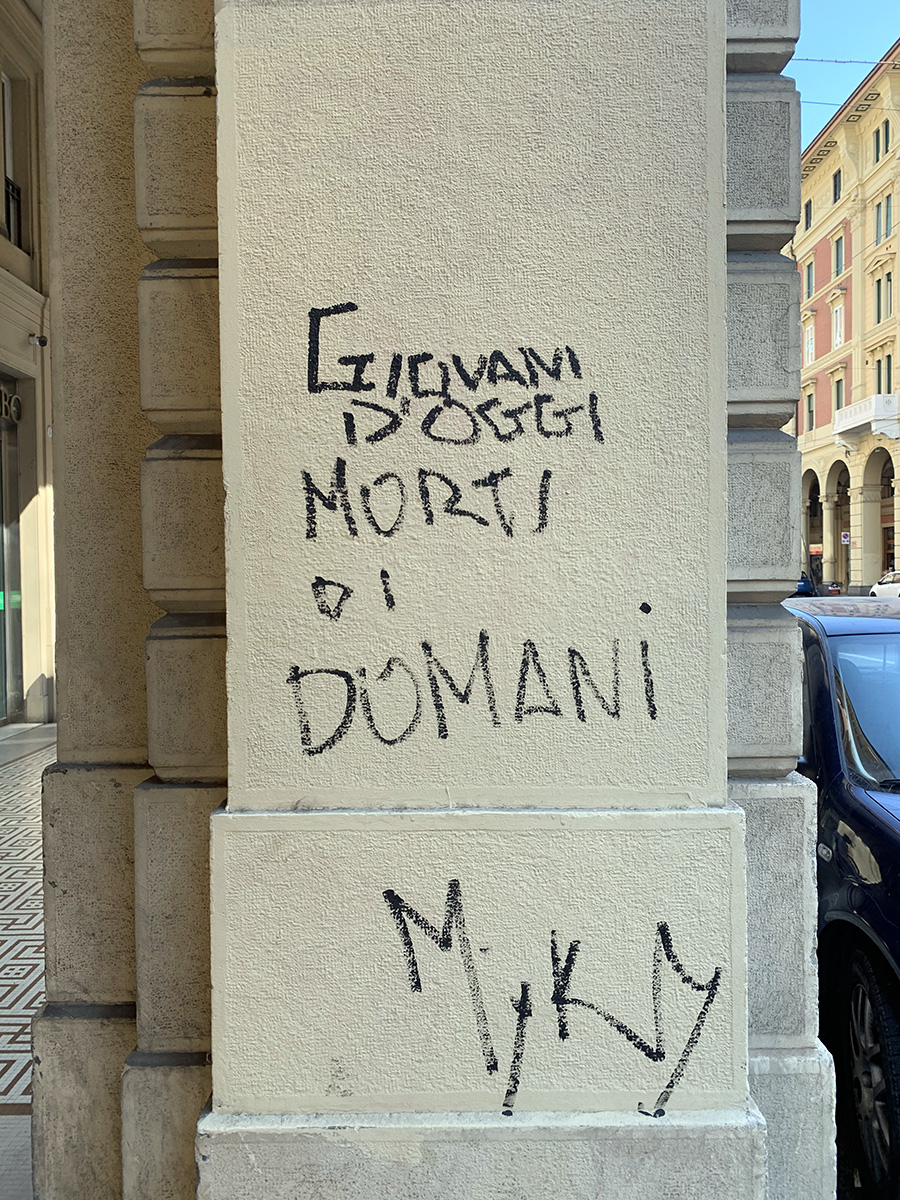 GIOVANI
D'OGGI
MORTI
DI
DOMANI
MyKy